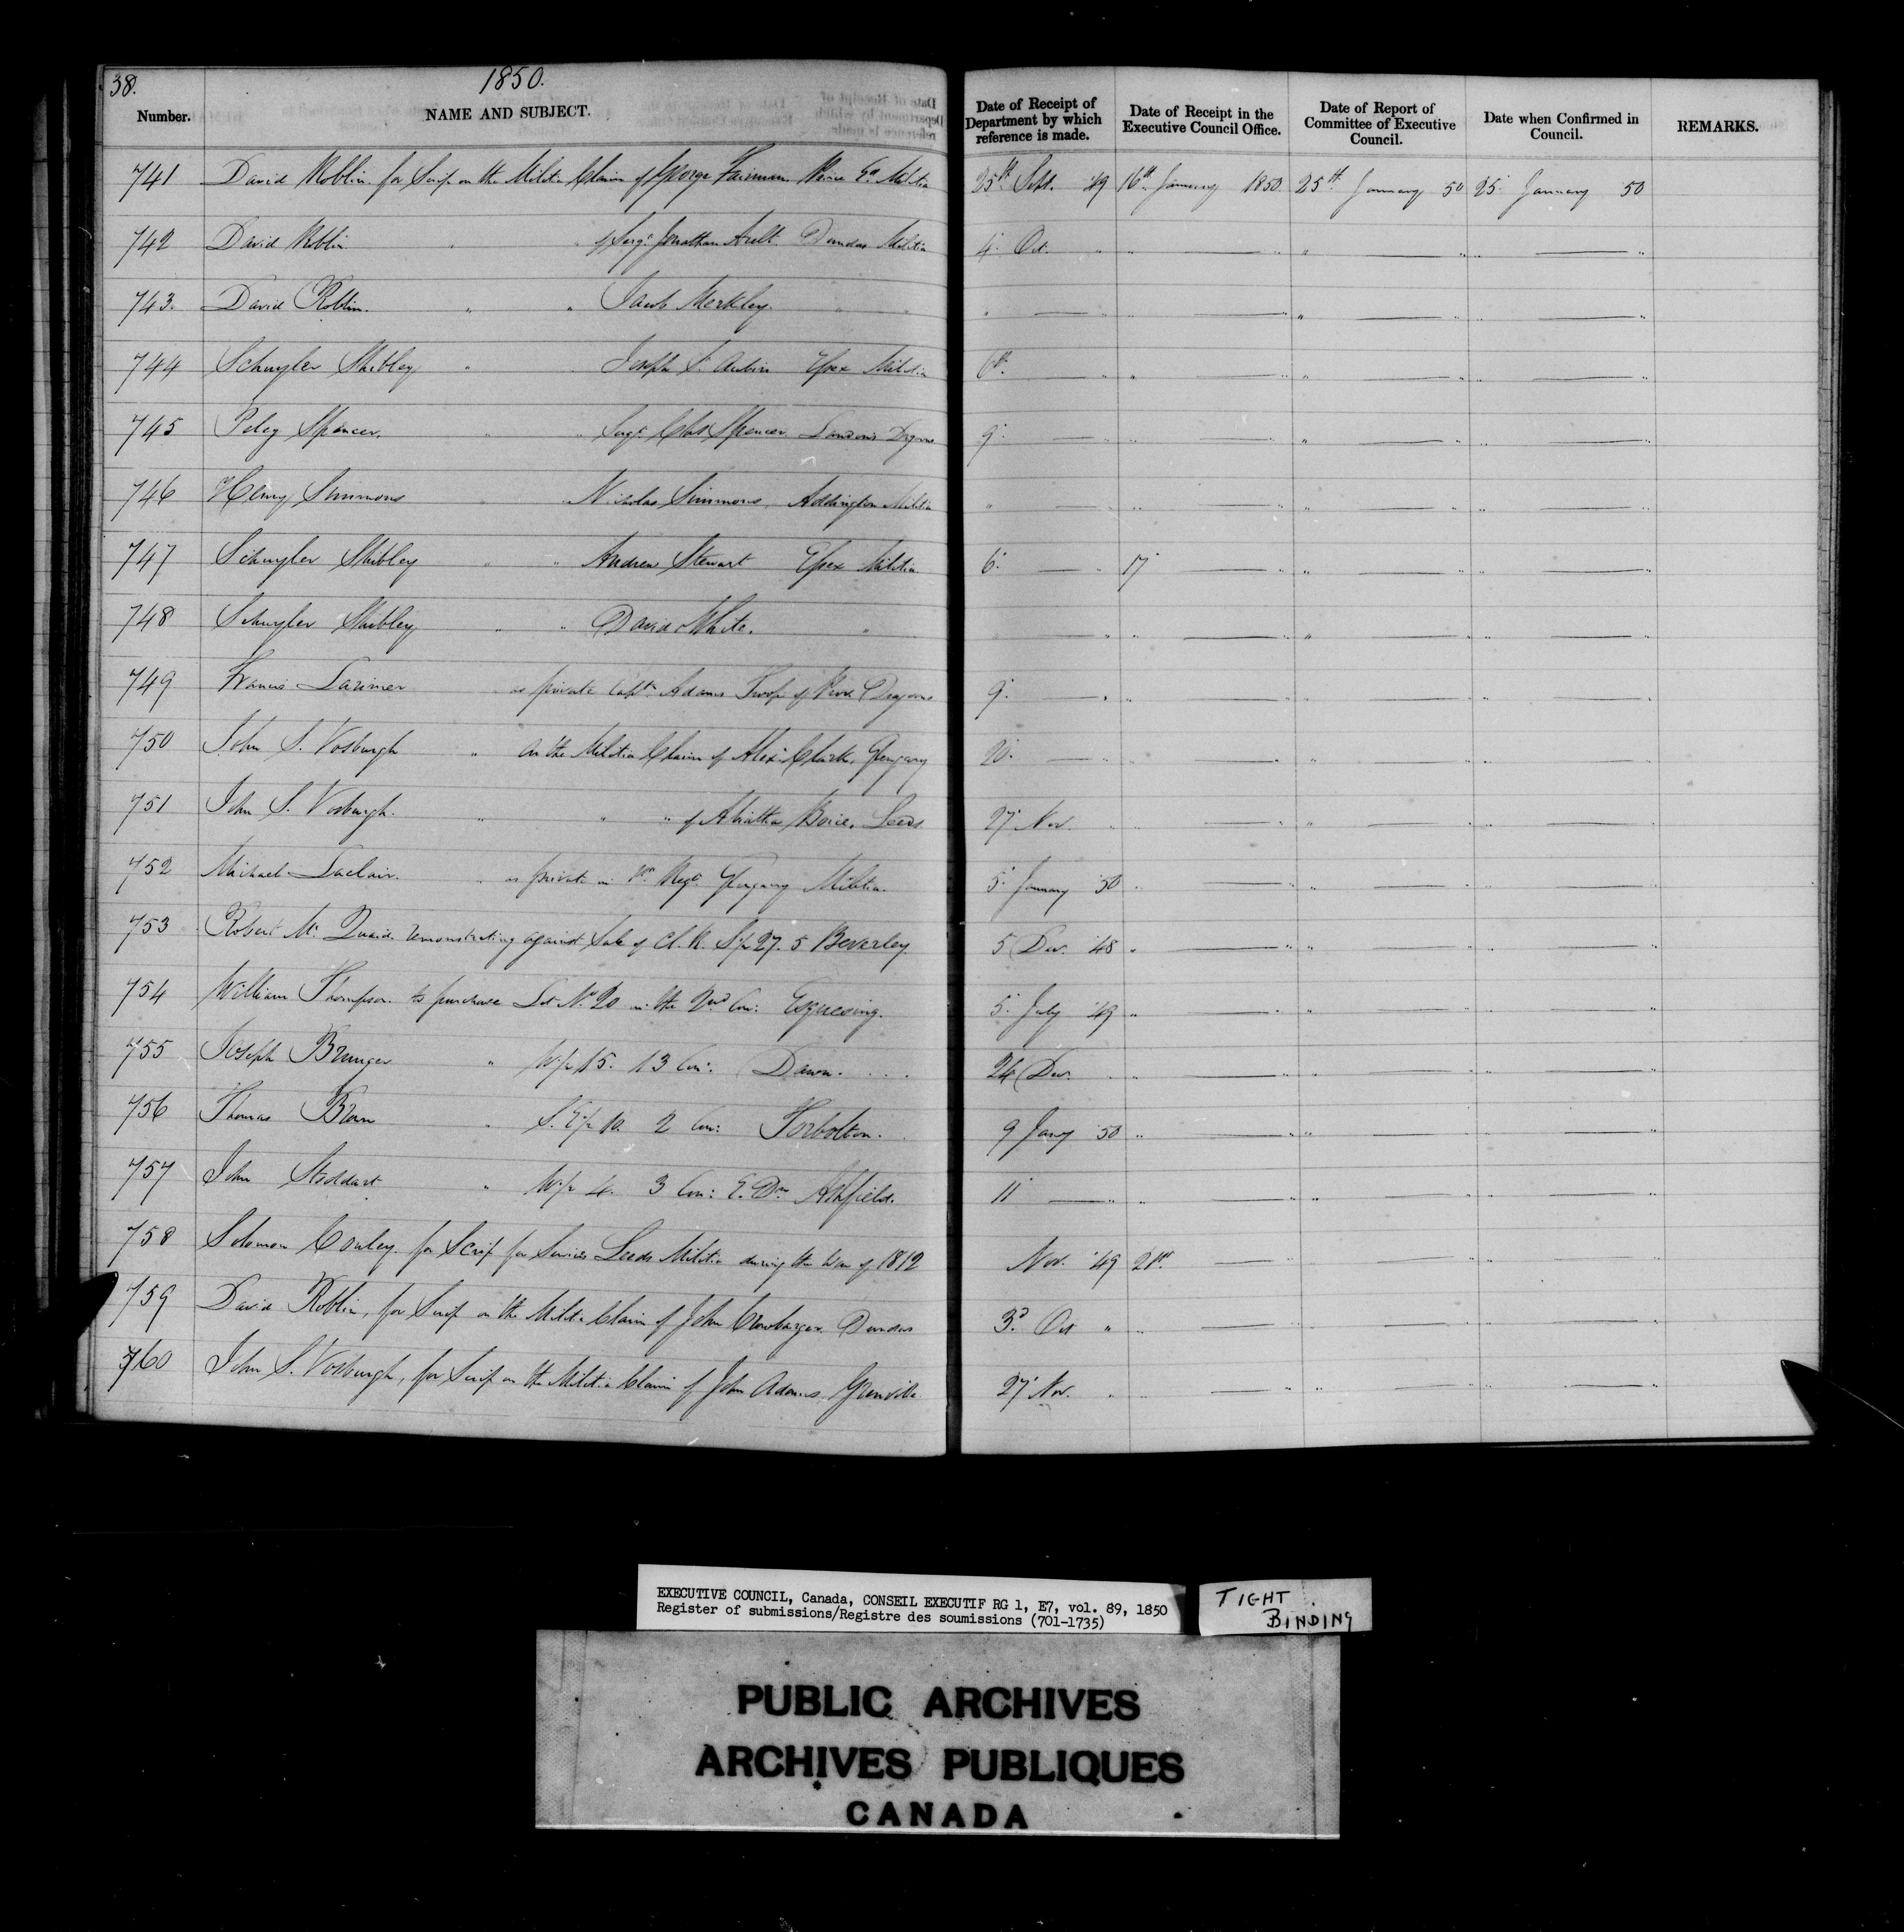 38.
1850.
Number. NAME AND SUBJECT. Date of Receipt of Department by which reference is made. Date of Receipt in the Executive Council Office. Date of Report of Committee of Executive Council. Date when Confirmed in Council. REMARKS.
741 David Roblin for Scrip on the Militia Claim of George Fairman Prince Ed Militia 25th Sept. '49 16th January 1850 25th January 50 25 January 50
742 David Roblin " " of Sergt Jonathan Ault Dundas Militia 4 Oct. " " — " " — " " — "
743. David Roblin. " " Jacob Merkley. " " " — " " — " " — " " — "
744 Schuyler Shibley " Joseph St Aubin Essex Militia 6th — " " — " " — " " — "
745 Peleg Spencer. " " Sergt Spencer London Dragoons 9 — " " — " " — " " — "
746 Henry Simmons " Nicholas Simmons, Addington Militia " — " " — " " — " " — "
747 Schuyler Shibley " " Andrew Stewart Essex Militia 6 — " 17 — " " — " " — "
748 Schuyler Shibley " " David White. " — " " — " " — " " — "
749 Francis Larimer " as private Capt Adams Troop of Prov. Dragoons 9 — " " — " " — " " — "
750 John S. Vosburgh " on the Militia Claim of Alexr Clark, Glengary 20 — " " — " " — " " — "
751 John S. Vosburgh. " " " of Abiathar Boice, Leeds 27 Nov. " " — " " — " " — "
752 Michael Laclair. " as private in 1st Regt Glengary Militia. 5 January '50 " — " " — " " — "
753 Robert Mc Quaid remonstrating against Sale of Cl. R. S ½ 27. 5 Beverley. 5 Dec. '48 " — " " — " " — "
754 William Thompson to purchase Lot No 20 in the 2nd Con: Esquesing. 5 July '49 " — " " — " " — "
755 Joseph " W ½ 15. 13 Con: Dawn. 24 Dec. " " — " " — " " — "
756 Thomas " S. E ½ 10. 2 Con: Torbolton. 9 Jany '50 " — " " — " " — "
757 John Stoddart " W ½ 4. 3 Con: E. Dn Ashfield. 11 — " " — " " — " " — "
758 Solomon Conley for Scrip for Services Leeds Militia during the War of 1812 Nov. '49 21st — " " — " " — "
759 David Roblin, for Scrip on the Militia Claim of John Dundas 3d Oct " " — " " — " " — "
760 John S. Vosburgh, for Scrip on the Militia Claim of John Adams, Grenville 27 Nov. " " — " " — " " — "
EXECUTIVE COUNCIL, Canada, CONSEIL EXECUTIF RG 1, E7, vol. 89, 1850
Register of submissions/Registre des soumissions (701-1735)
TIGHT
BINDING
PUBLIC ARCHIVES
ARCHIVES PUBLIQUES
CANADA